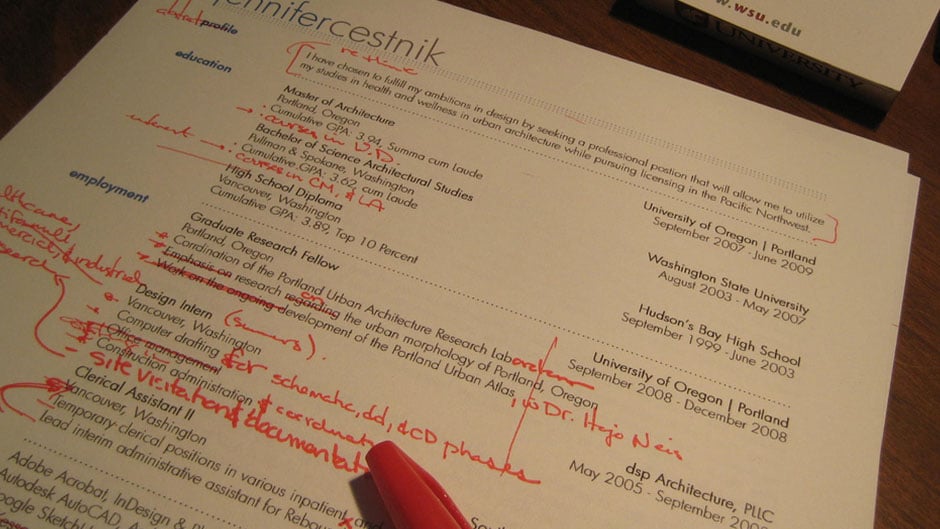 jennifercestnik
www.wsu.edu
UNIVERSITY
abstract
profile
rethink
I have chosen to fulfill my ambitions in design by seeking a professional postion that will allow me to utilize
my studies in health and wellness in urban architecture while pursuing licensing in the Pacific Northwest.
education
Master of Architecture
University of Oregon | Portland
Portland, Oregon
September 2007 - June 2009
Cumulative GPA: 3.94, Summa cum Laude
courses in U.D.
Bachelor of Science Architectural Studies
Washington State University
Fullman & Spokane, Washington
August 2003 - May 2007
interest
Cumulative GPA: 3.62, cum Laude
courses in CM, & LA
High School Diploma
Hudson's Bay High School
Vancouver, Washington
September 1999 - June 2003
Cumulative GPA: 3.89, Top 10 Percent
employment
Graduate Research Fellow
University of Oregon | Portland
Portland, Oregon
September 2008 - December 2008
Cordination of the Portland Urban Architecture Research Laboratory
Emphasis on research regarding the urban morphology of Portland, Oregon
on
Work on the ongoing development of the Portland Urban Atlas
, w/ Dr. Hajo Neis
& industrial
research
Design Intern (summers).
dsp Architecture, PLLC
Vancouver, Washington
May 2005 - September
Computer drafting for schematic, dd, & CD phases
Office management
Construction administration & coordinat
- site visitation & documentat
Clerical Assistant II
Vancouver, Washington
Temporary clerical positions in various inpatient and
Lead interim administrative assistant for Rebou
Adobe Acrobat, InDesign &
Autodesk AutoCAD,